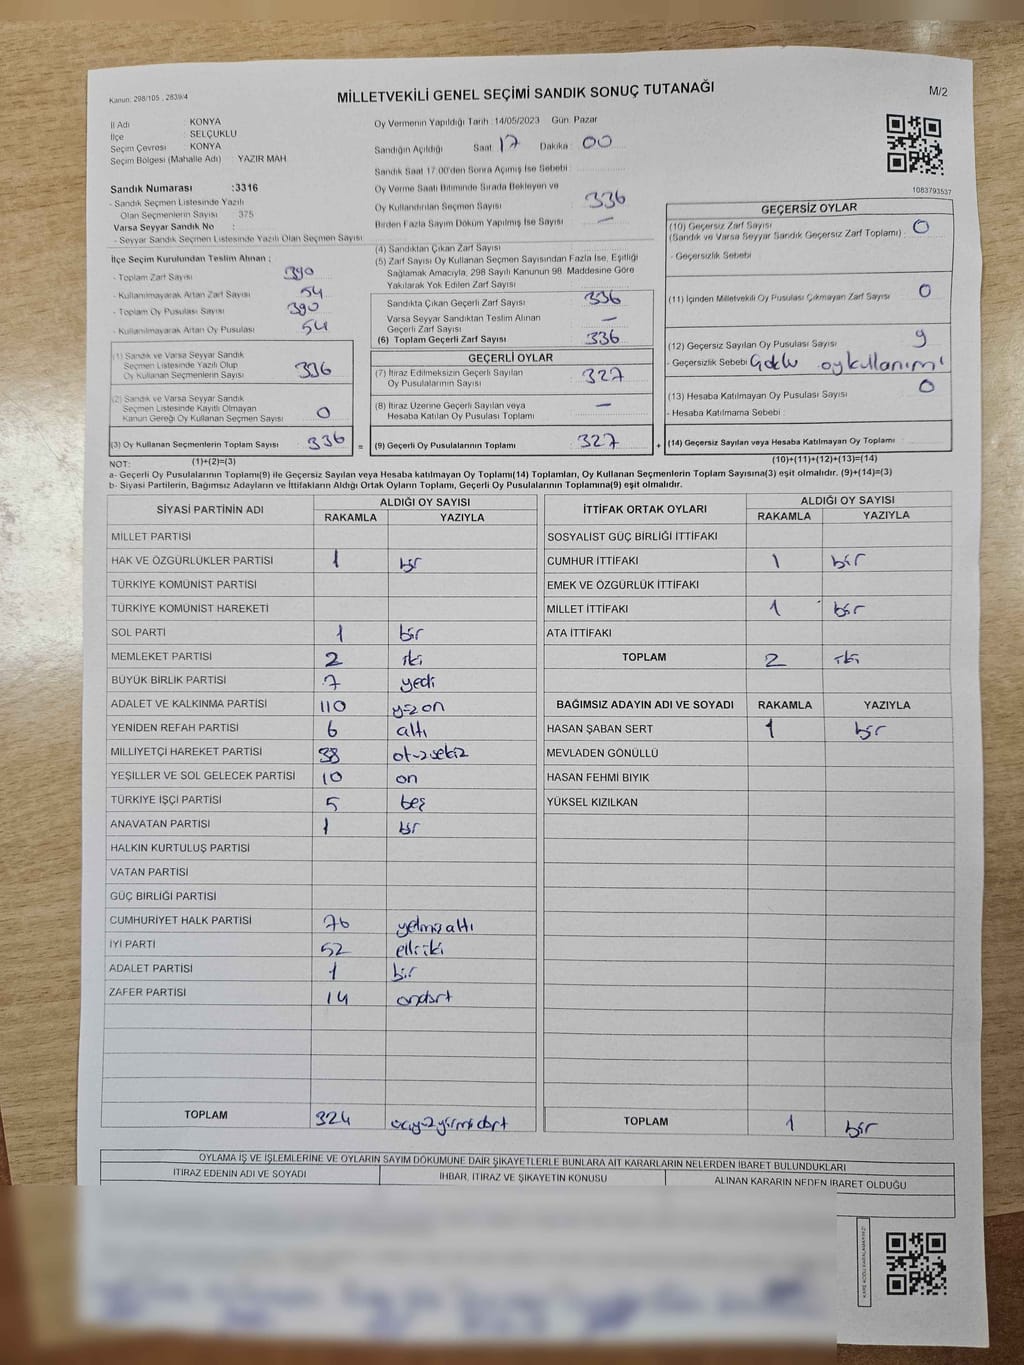 Kanun: 298/105 , 2839/4
MİLLETVEKİLİ GENEL SEÇİMİ SANDIK SONUÇ TUTANAĞI
M/2
İl Adı : KONYA
İlçe : SELÇUKLU
Seçim Çevresi : KONYA
Seçim Bölgesi (Mahalle Adı) : YAZIR MAH
Sandık Numarası :3316
- Sandık Seçmen Listesinde Yazılı
Olan Seçmenlerin Sayısı : 375
Varsa Seyyar Sandık No :
- Seyyar Sandık Seçmen Listesinde Yazılı Olan Seçmen Sayısı
İlçe Seçim Kurulundan Teslim Alınan ;
- Toplam Zarf Sayısı : 390
- Kullanılmayarak Artan Zarf Sayısı : 54
- Toplam Oy Pusulası Sayısı : 390
- Kullanılmayarak Artan Oy Pusulası : 54
(1) Sandık ve Varsa Seyyar Sandık
Seçmen Listesinde Yazılı Olup
Oy Kullanan Seçmenlerin Sayısı 336
(2) Sandık ve Varsa Seyyar Sandık
Seçmen Listesinde Kayıtlı Olmayan
Kanun Gereği Oy Kullanan Seçmen Sayısı 0
(3) Oy Kullanan Seçmenlerin Toplam Sayısı 336 =
(1)+(2)=(3)
Oy Vermenin Yapıldığı Tarih :14/05/2023 Gün: Pazar
Sandığın Açıldığı Saat : 17 Dakika : 00
Sandık Saat 17.00'den Sonra Açılmış İse Sebebi :
Oy Verme Saati Bitiminde Sırada Bekleyen ve
Oy Kullandırılan Seçmen Sayısı : 336
Birden Fazla Sayım Döküm Yapılmış İse Sayısı : —
(4) Sandıktan Çıkan Zarf Sayısı :
(5) Zarf Sayısı Oy Kullanan Seçmen Sayısından Fazla İse, Eşitliği
Sağlamak Amacıyla, 298 Sayılı Kanunun 98. Maddesine Göre
Yakılarak Yok Edilen Zarf Sayısı :
Sandıkta Çıkan Geçerli Zarf Sayısı : 336
Varsa Seyyar Sandıktan Teslim Alınan
Geçerli Zarf Sayısı : —
(6) Toplam Geçerli Zarf Sayısı : 336
GEÇERLİ OYLAR
(7) İtiraz Edilmeksizin Geçerli Sayılan
Oy Pusulalarının Sayısı : 327
(8) İtiraz Üzerine Geçerli Sayılan veya
Hesaba Katılan Oy Pusulası Toplamı : —
(9) Geçerli Oy Pusulalarının Toplamı : 327 +
1083793537
GEÇERSİZ OYLAR
(10) Geçersiz Zarf Sayısı
(Sandık ve Varsa Seyyar Sandık Geçersiz Zarf Toplamı) : 0
- Geçersizlik Sebebi :
(11) İçinden Milletvekili Oy Pusulası Çıkmayan Zarf Sayısı : 0
(12) Geçersiz Sayılan Oy Pusulası Sayısı : 9
- Geçersizlik Sebebi : Çoklu oy kullanımı
(13) Hesaba Katılmayan Oy Pusulası Sayısı : 0
- Hesaba Katılmama Sebebi :
(14) Geçersiz Sayılan veya Hesaba Katılmayan Oy Toplamı :
(10)+(11)+(12)+(13)=(14)
NOT:
a- Geçerli Oy Pusulalarının Toplamı(9) ile Geçersiz Sayılan veya Hesaba katılmayan Oy Toplamı(14) Toplamları, Oy Kullanan Seçmenlerin Toplam Sayısına(3) eşit olmalıdır. (9)+(14)=(3)
b- Siyasi Partilerin, Bağımsız Adayların ve İttifakların Aldığı Ortak Oyların Toplamı, Geçerli Oy Pusulalarının Toplamına(9) eşit olmalıdır.
SİYASİ PARTİNİN ADI ALDIĞI OY SAYISI
RAKAMLA YAZIYLA
MİLLET PARTİSİ
HAK VE ÖZGÜRLÜKLER PARTİSİ 1 bir
TÜRKİYE KOMÜNİST PARTİSİ
TÜRKİYE KOMÜNİST HAREKETİ
SOL PARTİ 1 bir
MEMLEKET PARTİSİ 2 iki
BÜYÜK BİRLİK PARTİSİ 7 yedi
ADALET VE KALKINMA PARTİSİ 110 yüzon
YENİDEN REFAH PARTİSİ 6 altı
MİLLİYETÇİ HAREKET PARTİSİ 38 otuzsekiz
YEŞİLLER VE SOL GELECEK PARTİSİ 10 on
TÜRKİYE İŞÇİ PARTİSİ 5 beş
ANAVATAN PARTİSİ 1 bir
HALKIN KURTULUŞ PARTİSİ
VATAN PARTİSİ
GÜÇ BİRLİĞİ PARTİSİ
CUMHURİYET HALK PARTİSİ 76 yetmişaltı
İYİ PARTİ 52 elliiki
ADALET PARTİSİ 1 bir
ZAFER PARTİSİ 14 ondört
TOPLAM 324 üçyüzyirmidört
İTTİFAK ORTAK OYLARI ALDIĞI OY SAYISI
RAKAMLA YAZIYLA
SOSYALİST GÜÇ BİRLİĞİ İTTİFAKI
CUMHUR İTTİFAKI 1 bir
EMEK VE ÖZGÜRLÜK İTTİFAKI
MİLLET İTTİFAKI 1 bir
ATA İTTİFAKI
TOPLAM 2 iki
BAĞIMSIZ ADAYIN ADI VE SOYADI RAKAMLA YAZIYLA
HASAN ŞABAN SERT 1 bir
MEVLADEN GÖNÜLLÜ
HASAN FEHMİ BIYIK
YÜKSEL KIZILKAN
TOPLAM 1 bir
OYLAMA İŞ VE İŞLEMLERİNE VE OYLARIN SAYIM DÖKÜMÜNE DAİR ŞİKAYETLERLE BUNLARA AİT KARARLARIN NELERDEN İBARET BULUNDUKLARI
İTİRAZ EDENİN ADI VE SOYADI İHBAR, İTİRAZ VE ŞİKAYETİN KONUSU ALINAN KARARIN NEDEN İBARET OLDUĞU
KARE KODU KARALAMAYINIZ!